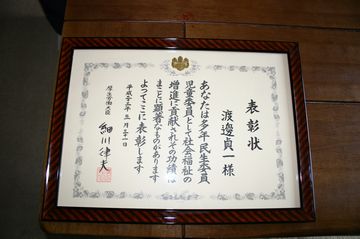 表彰状
渡邊貞一様
あなたは多年民生委員
児童委員として社会福祉の
増進に貢献されその功績は
まことに顕著なものがあります
よってここに表彰します
平成二十三年三月二十一日
厚生労働大臣
細川律夫